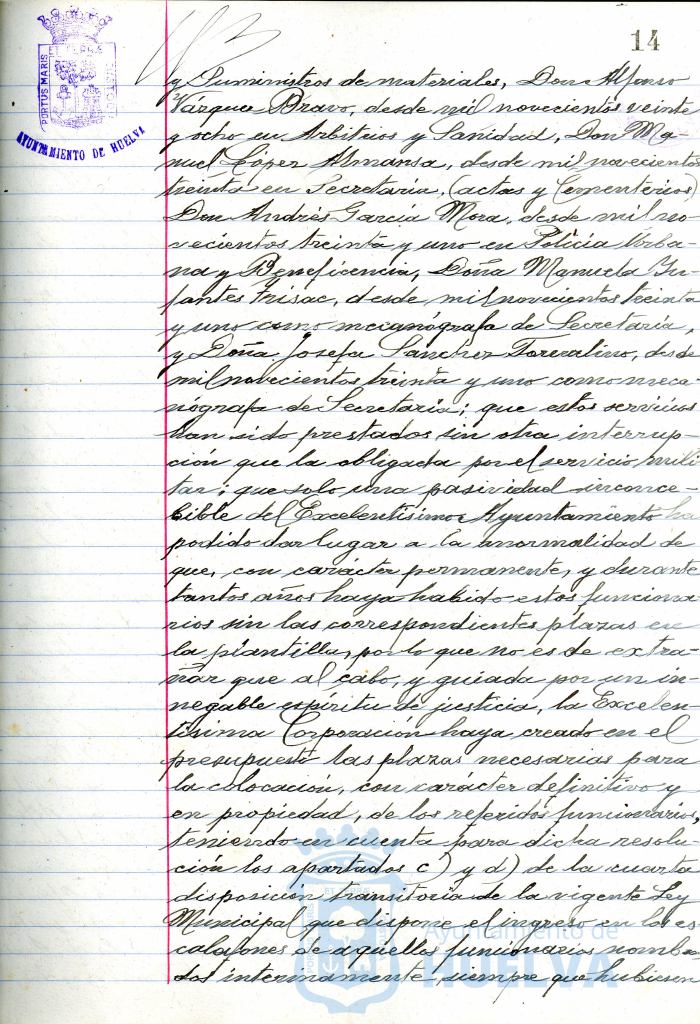 14
PORTUS MARIS
AYUNTAMIENTO DE HUELVA
y Suministros de materiales, Don Alfonso
Vazquez Bravo, desde mil novecientos veinte
y ocho en Arbitrios y Sanidad, Don Ma-
nuel López Almansa, desde mil novecientos
treinta en Secretaría, (actas y Cementerios)
Don Andrés García Mora, desde mil no-
vecientos treinta y uno en Policía Urba-
na y Beneficencia, Doña Manuela In-
fantes Frisac, desde mil novecientos treinta
y uno como mecanógrafa de Secretaría,
y Doña Josefa Sanchez, desde
mil novecientos treinta y uno como meca
nógrafa de Secretaría; que estos servicios
han sido prestados sin otra interrup-
ción que la obligada por el servicio mili
tar; que solo una pasividad inconce-
bible del Excelentísimo Ayuntamiento ha
podido dar lugar a la anormalidad de
que, con carácter permanente, y durante
tantos años haya habido estos funciona
rios sin las correspondientes plazas en
la plantilla, por lo que no es de extra-
ñar que al cabo, y guiada por un in-
negable espíritu de justicia, la Excelen-
tísima Corporación haya creado en el
presupuesto las plazas necesarias para
la colocación, con carácter definitivo y
en propiedad, de los referidos funcionarios,
teniendo en cuenta para dicha resolu-
ción los apartados c) y d) de la cuarta
disposición transitoria de la vigente Ley
Municipal que dispone el ingreso en los es-
calafones de aquellos funcionarios nombra
dos interinamente, siempre que hubiesen
Ayuntamiento de
HUELVA